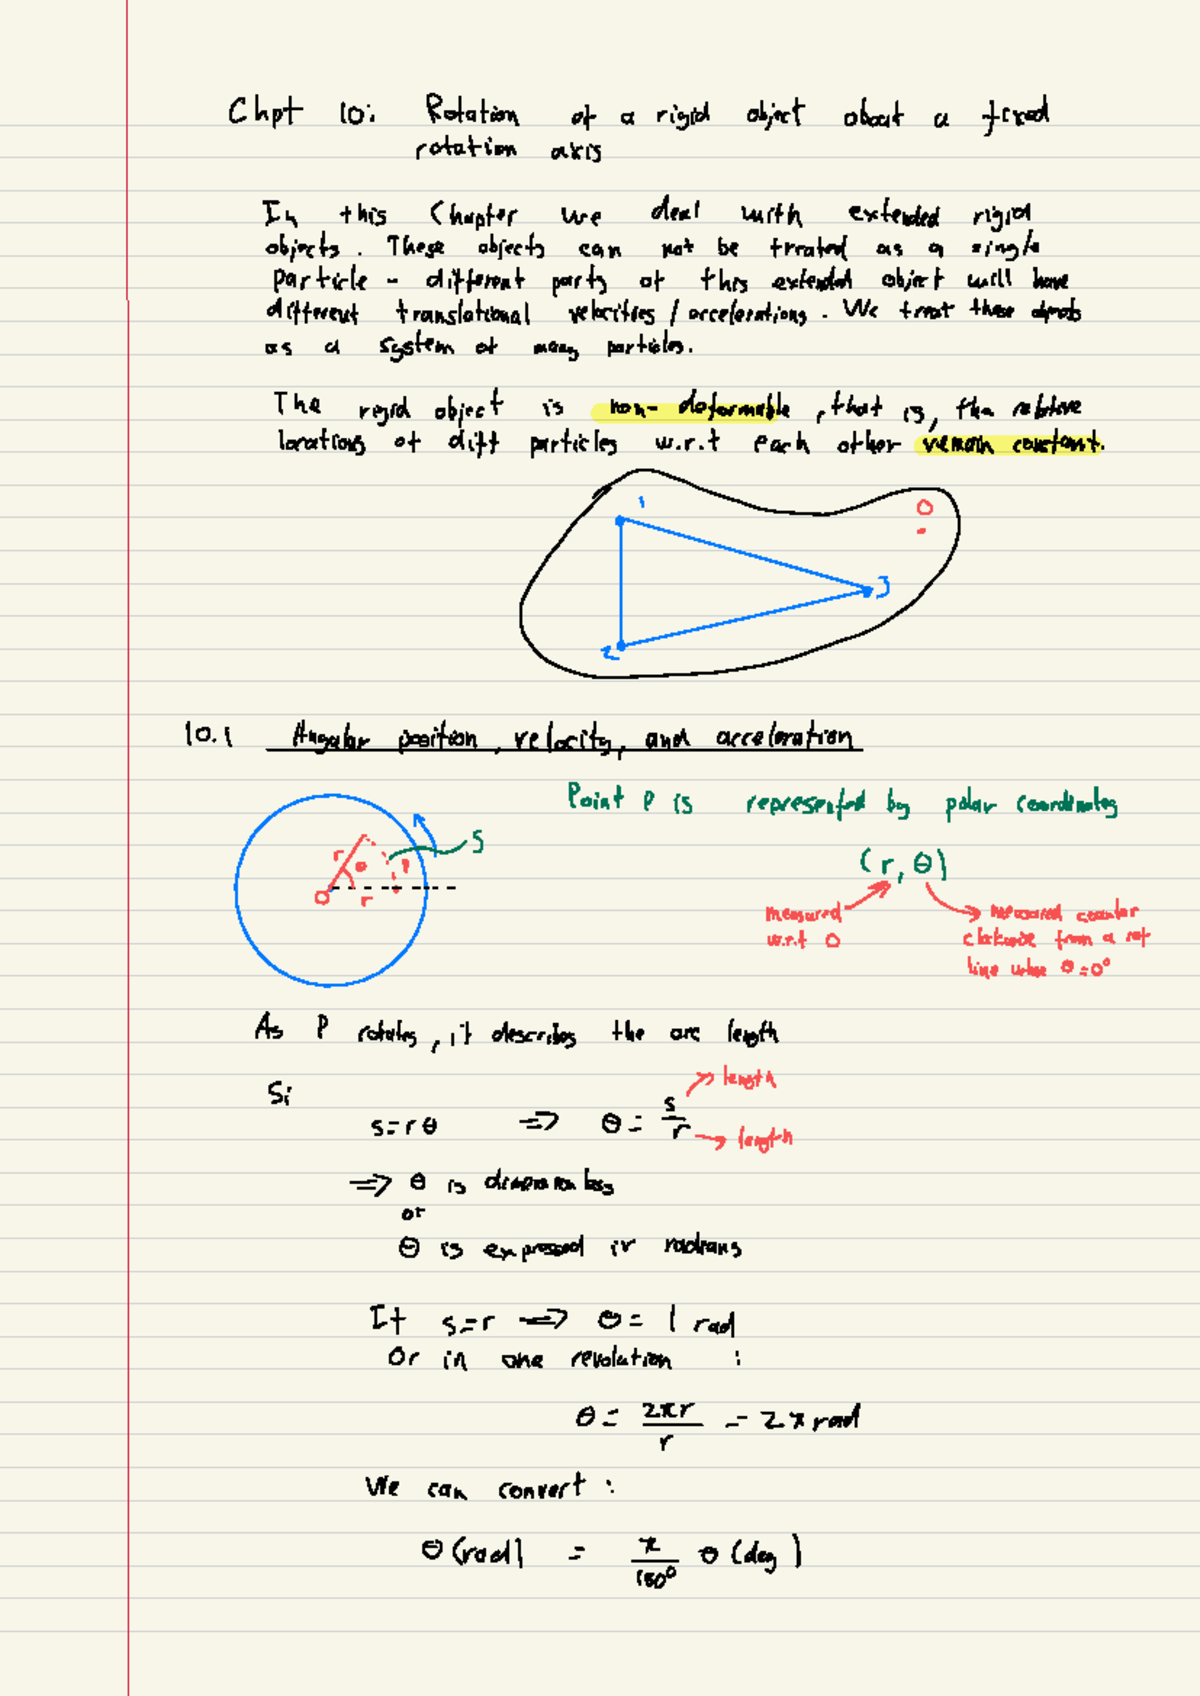 Chpt 10: Rotation of a rigid object about a fixed
rotation axis
In this Chapter we deal with extended rigid
objects. These objects can not be treated as a single
particle - different parts of this extended object will have
different translational velocities / accelerations. We treat these objects
as a system of many particles.
The rigid object is non-deformable, that is, the relative
locations of diff particles w.r.t each other remain constant.
1
O
3
2
10.1 Angular position, velocity, and acceleration
Point P is represented by polar coordinates
S
r θ P
O r
(r, θ)
measured
w.r.t O
measured counter
clockwise from a ref
line where θ=0°
As P rotates, it describes the arc length
S:
s=rθ => θ = s/r
length
length
=> θ is dimensionless
or
θ is expressed in radians
If s=r => θ = 1 rad
Or in one revolution :
θ = 2πr/r = 2π rad
We can convert :
θ (rad) = π/180° θ (deg)